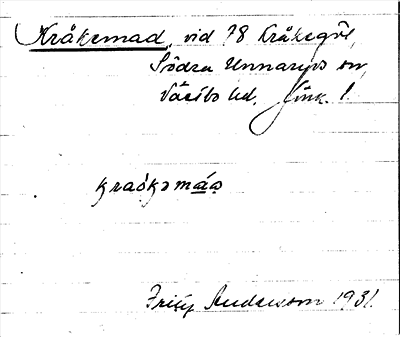 Kråkemad, vid 78 Kråkegöl,
Södra Unnaryds sn,
Västbo hd. Jönk. l.
kraǻkəmáə
Fritz Andersson 1931.